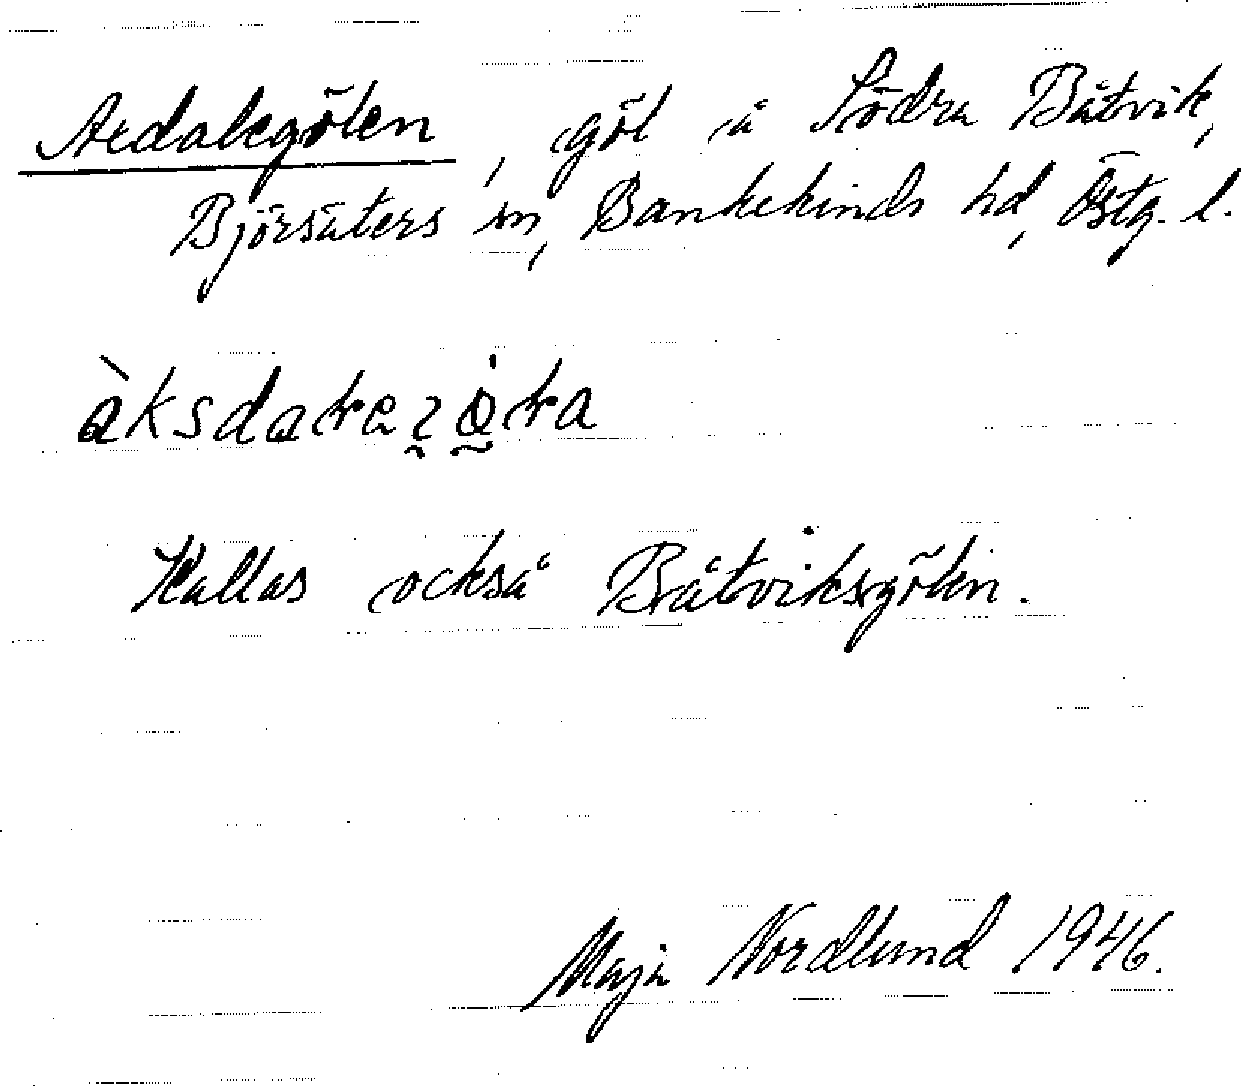 Axdalegölen, göl å Södra Båtvik,
Björsäters sn, Bankekinds hd, Östg. l.
Kallas också Båtviksgölen.
Maja Nordlund 1946.